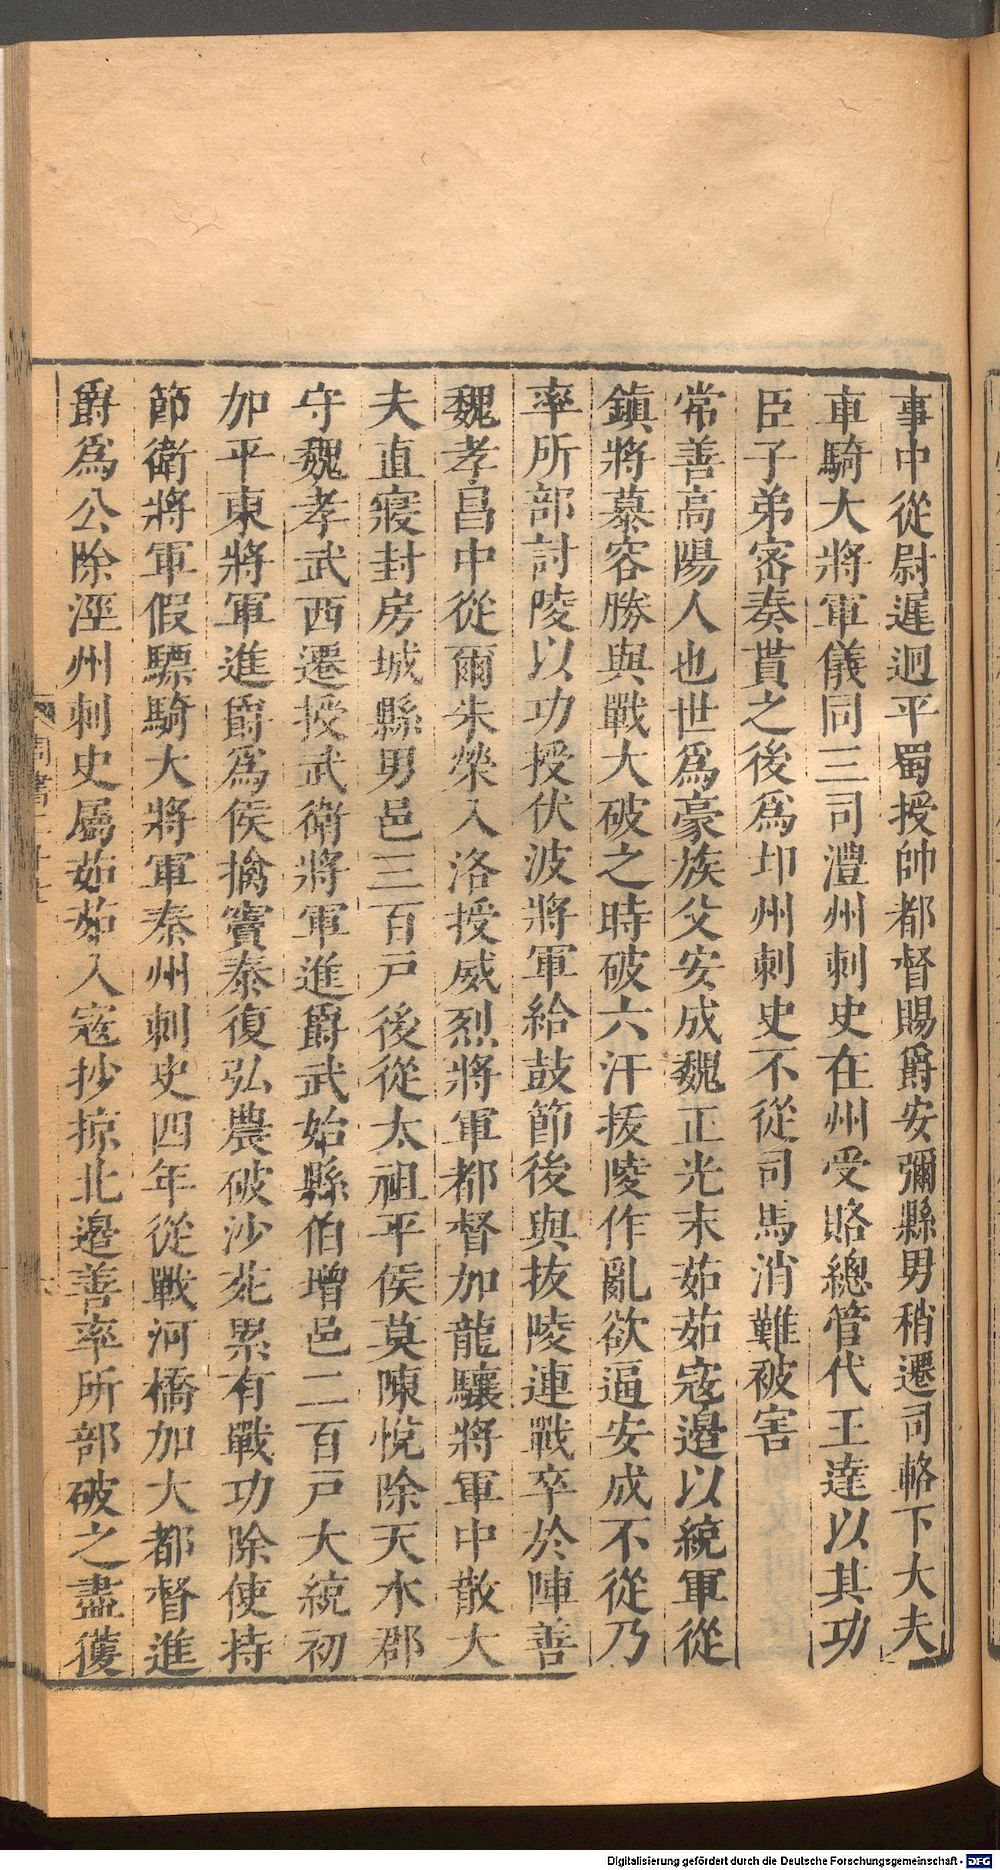 事中從尉遲迥平蜀授帥都督賜爵安彌縣男稍遷司輅下大夫
車騎大將軍儀同三司澧州刺史在州受賂總管代王達以其功
臣子弟密奏貰之後爲邛州刺史不從司馬消難被害
常善高陽人也世爲豪族父安成魏正光末茹茹寇邊以統軍從
鎮將慕容勝與戰大破之時破六汗拔陵作亂欲逼安成不從乃
率所部討陵以功授伏波將軍給鼓節後與拔陵連戰卒於陣善
魏孝昌中從爾朱榮入洛授威烈將軍都督加龍驤將軍中散大
夫直寢封房城縣男邑三百戸後從太祖平侯莫陳悅除天水郡
守魏孝武西遷授武衛將軍進爵武始縣伯增邑二百戸大統初
加平東將軍進爵爲侯擒竇泰復弘農破沙苑累有戰功除使持
節衛將軍假驃騎大將軍秦州刺史四年從戰河橋加大都督進
爵爲公除涇州刺史屬茹茹入寇抄掠北邊善率所部破之盡獲
周書二十七
Digitalisierung gefördert durch die Deutsche Forschungsgemeinschaft - DFG